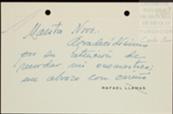 Marita Novo.
Agradecidísimo
por su atención de
recordar mi onomástico;
un abrazo con cariño
RAFAEL LLAMAS